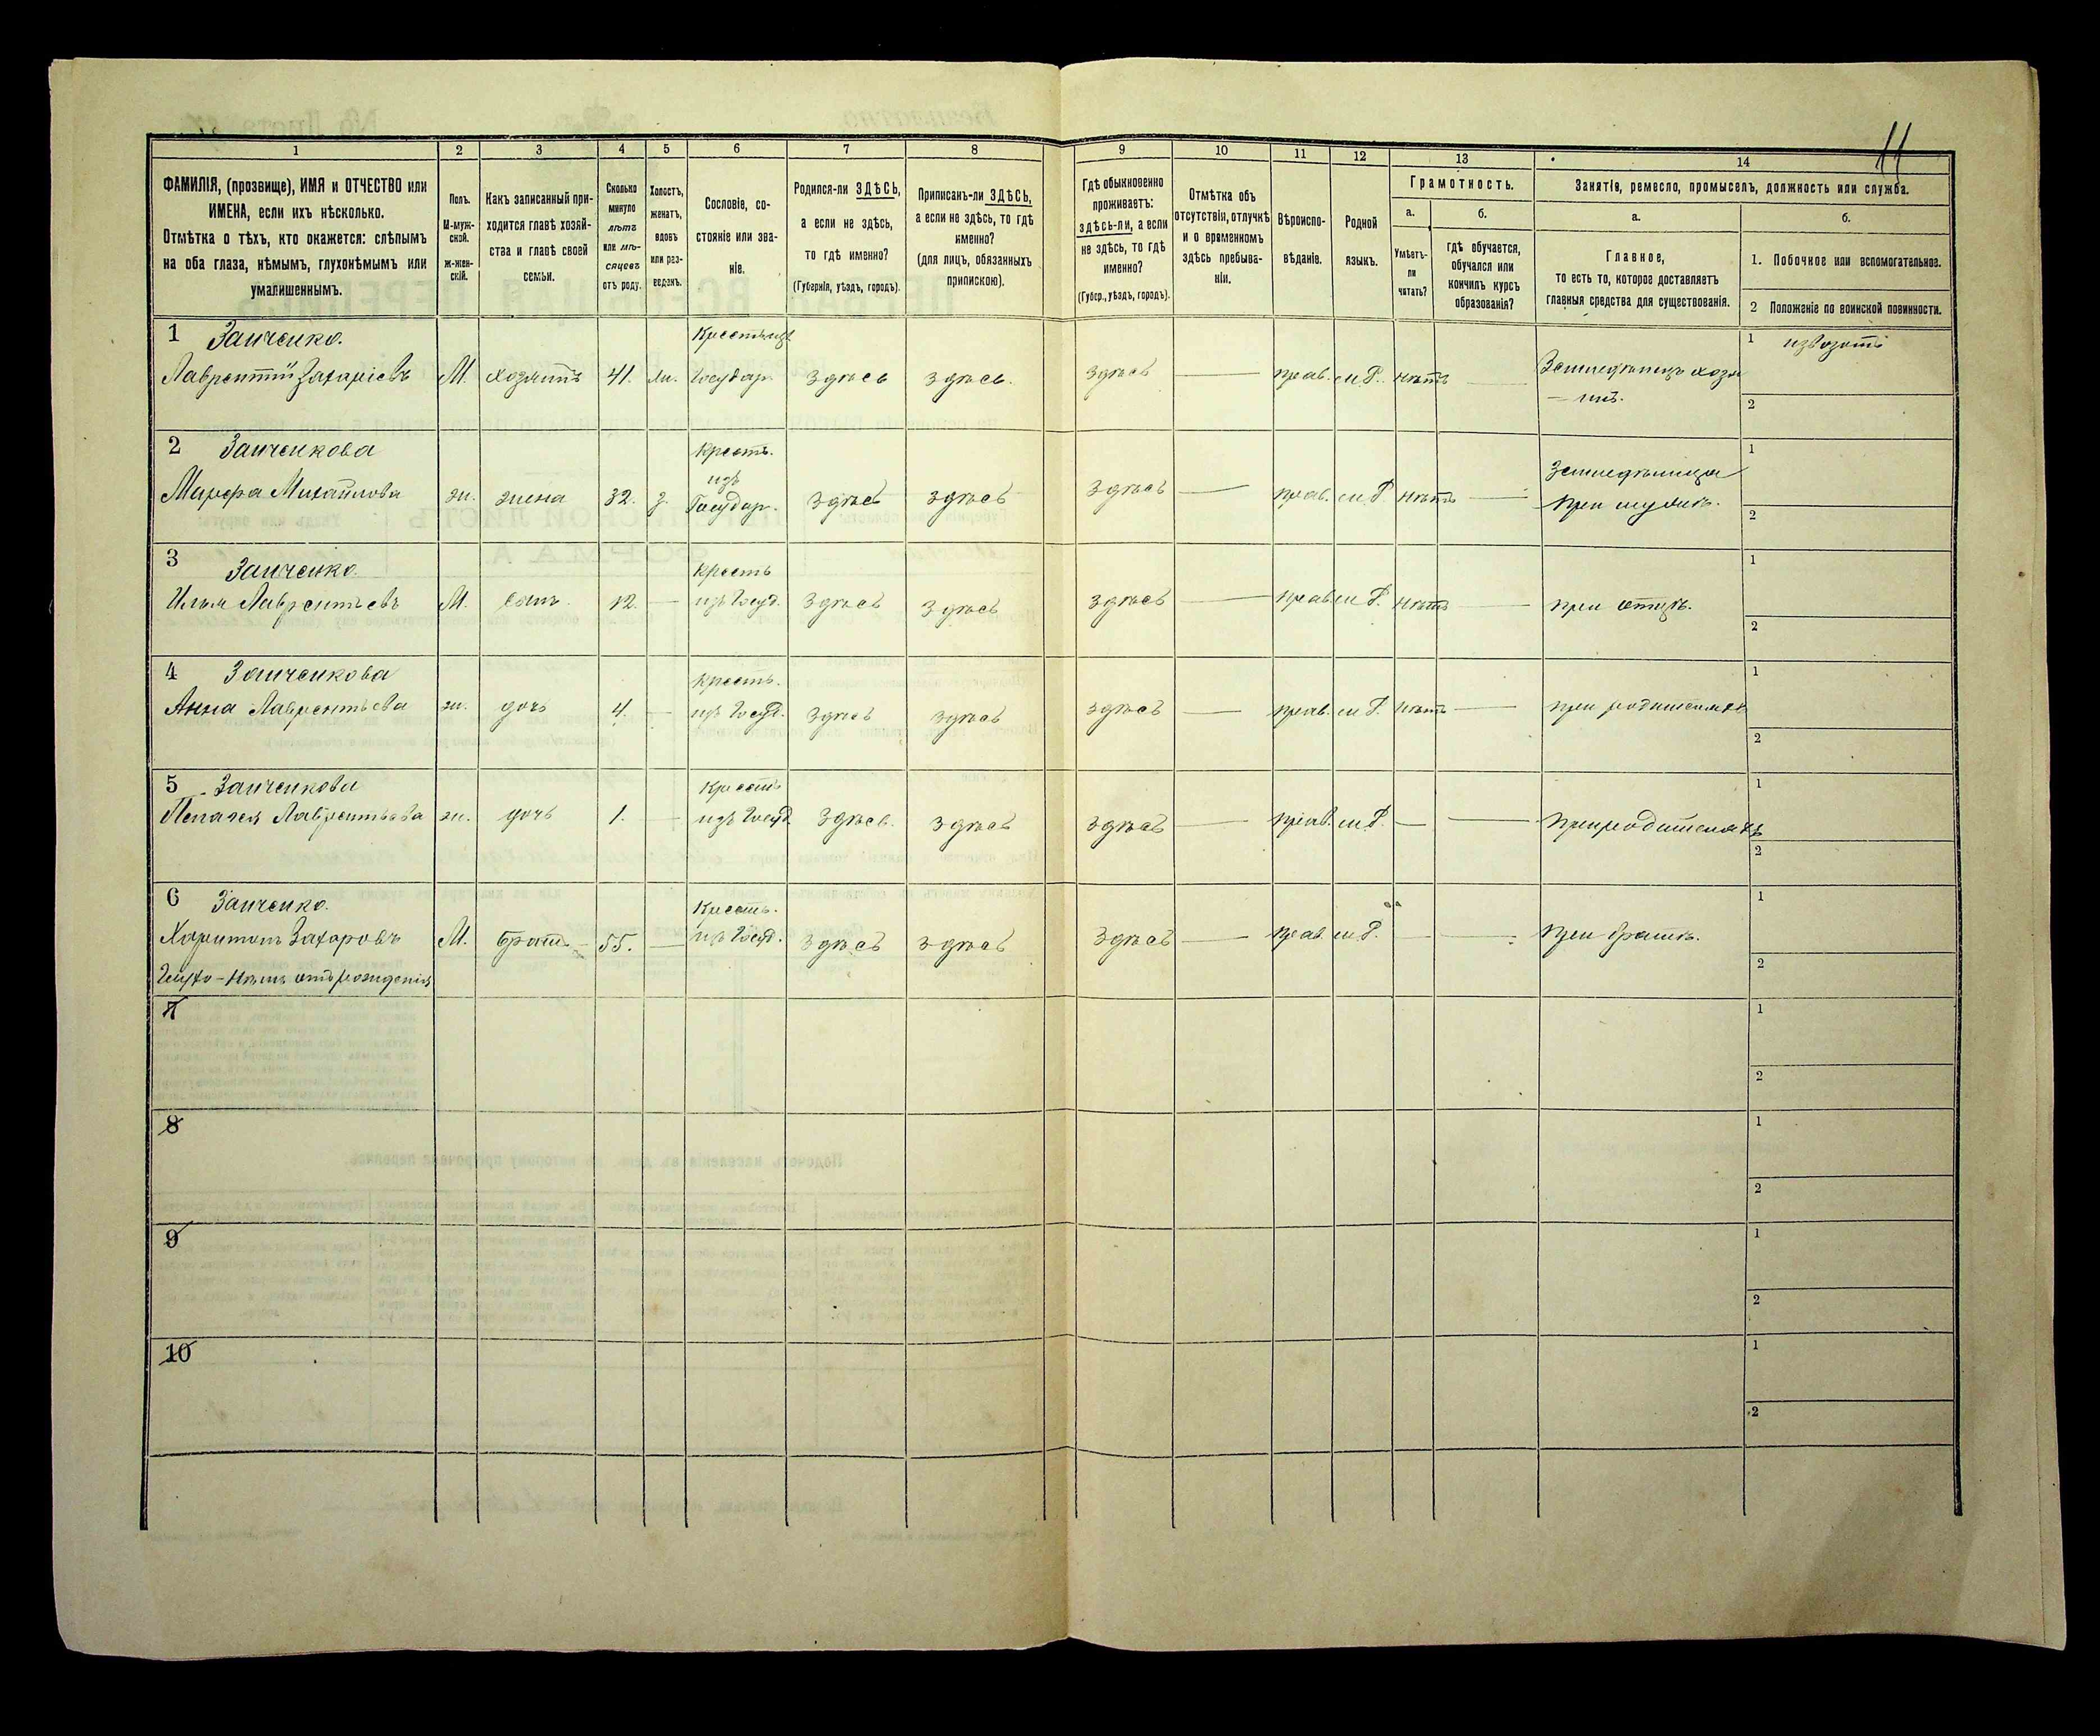 11
1 2 3 4 5 6 7 8 9 10 11 12 13 14
ФАМИЛІЯ, (прозвище), ИМЯ и ОТЧЕСТВО или
ИМЕНА, если ихъ нѣсколько.
Отмѣтка о тѣхъ, кто окажется: слѣпымъ
на оба глаза, нѣмымъ, глухонѣмымъ или
умалишеннымъ.
Полъ.
М-муж-
ской.
ж-жен-
скій.
Какъ записанный при-
ходится главѣ хозяй-
ства и главѣ своей
семьи.
Сколько
минуло
лѣтъ
или мѣ-
сяцевъ
отъ роду.
Холостъ,
женатъ,
вдовъ
или раз-
веденъ.
Сословіе, со-
стояніе или зва-
ніе.
Родился-ли ЗДѢСЬ,
а если не здѣсь,
то гдѣ именно?
(Губернія, уѣздъ, городъ).
Приписанъ-ли ЗДѢСЬ,
а если не здѣсь, то гдѣ
именно?
(для лицъ, обязанныхъ
припискою).
Гдѣ обыкновенно
проживаетъ:
здѣсь-ли, а если
не здѣсь, то гдѣ
именно?
(Губер., уѣздъ, городъ).
Отмѣтка объ
отсутствіи, отлучкѣ
и о временномъ
здѣсь пребыва-
ніи.
Вѣроиспо-
вѣданіе.
Родной
языкъ.
Грамотность.
а.
Умѣетъ-
ли
читать?
б.
гдѣ обучается,
обучался или
кончилъ курсъ
образованія?
Занятіе, ремесло, промыселъ, должность или служба.
а.
Главное,
то есть то, которое доставляетъ
главныя средства для существованія.
б.
1. Побочное или вспомогательное.
2 Положеніе по воинской повинности.
1 Заиченко. Крестьизъ 1 извозомъ
Лаврентій Захаріевъ М. хозяинъ 41. жн. Государ. здѣсь здѣсь. здѣсь — прав. м.Р. нѣтъ — Земледѣлецъ хозя
— инъ. 2
2 Заиченкова Крест. 1
изъ Земледѣлица
Марфа Михайлова ж. жена 32. з. Государ. здѣсь здѣсь здѣсь — прав. м.Р. нѣтъ — при мужѣ. 2
3 Заиченко Крест 1
Илья Лаврентьевъ М. сынъ 12. — изъ Госуд. здѣсь здѣсь здѣсь — прав. м.Р. нѣтъ — при отцѣ. 2
4 Заиченкова Крест. 1
Анна Лаврентьева ж. дочь 4. — изъ Госуд. здѣсь здѣсь здѣсь — прав. м.Р. нѣтъ — при родителяхъ 2
5 Заиченкова Крест 1
Пелагея Лаврентьева ж. дочь 1. — изъ Госуд здѣсь здѣсь здѣсь — прав. м.Р. — — при родителяхъ 2
6 Заиченко. Крест. 1
Харитонъ Захаровъ М. братъ 55. — изъ Госуд. здѣсь здѣсь здѣсь — прав. м.Р. — — при братѣ. 2
Глухо-нѣмъ отъ рожденія
7 1
2
8 1
2
9 1
2
10 1
2